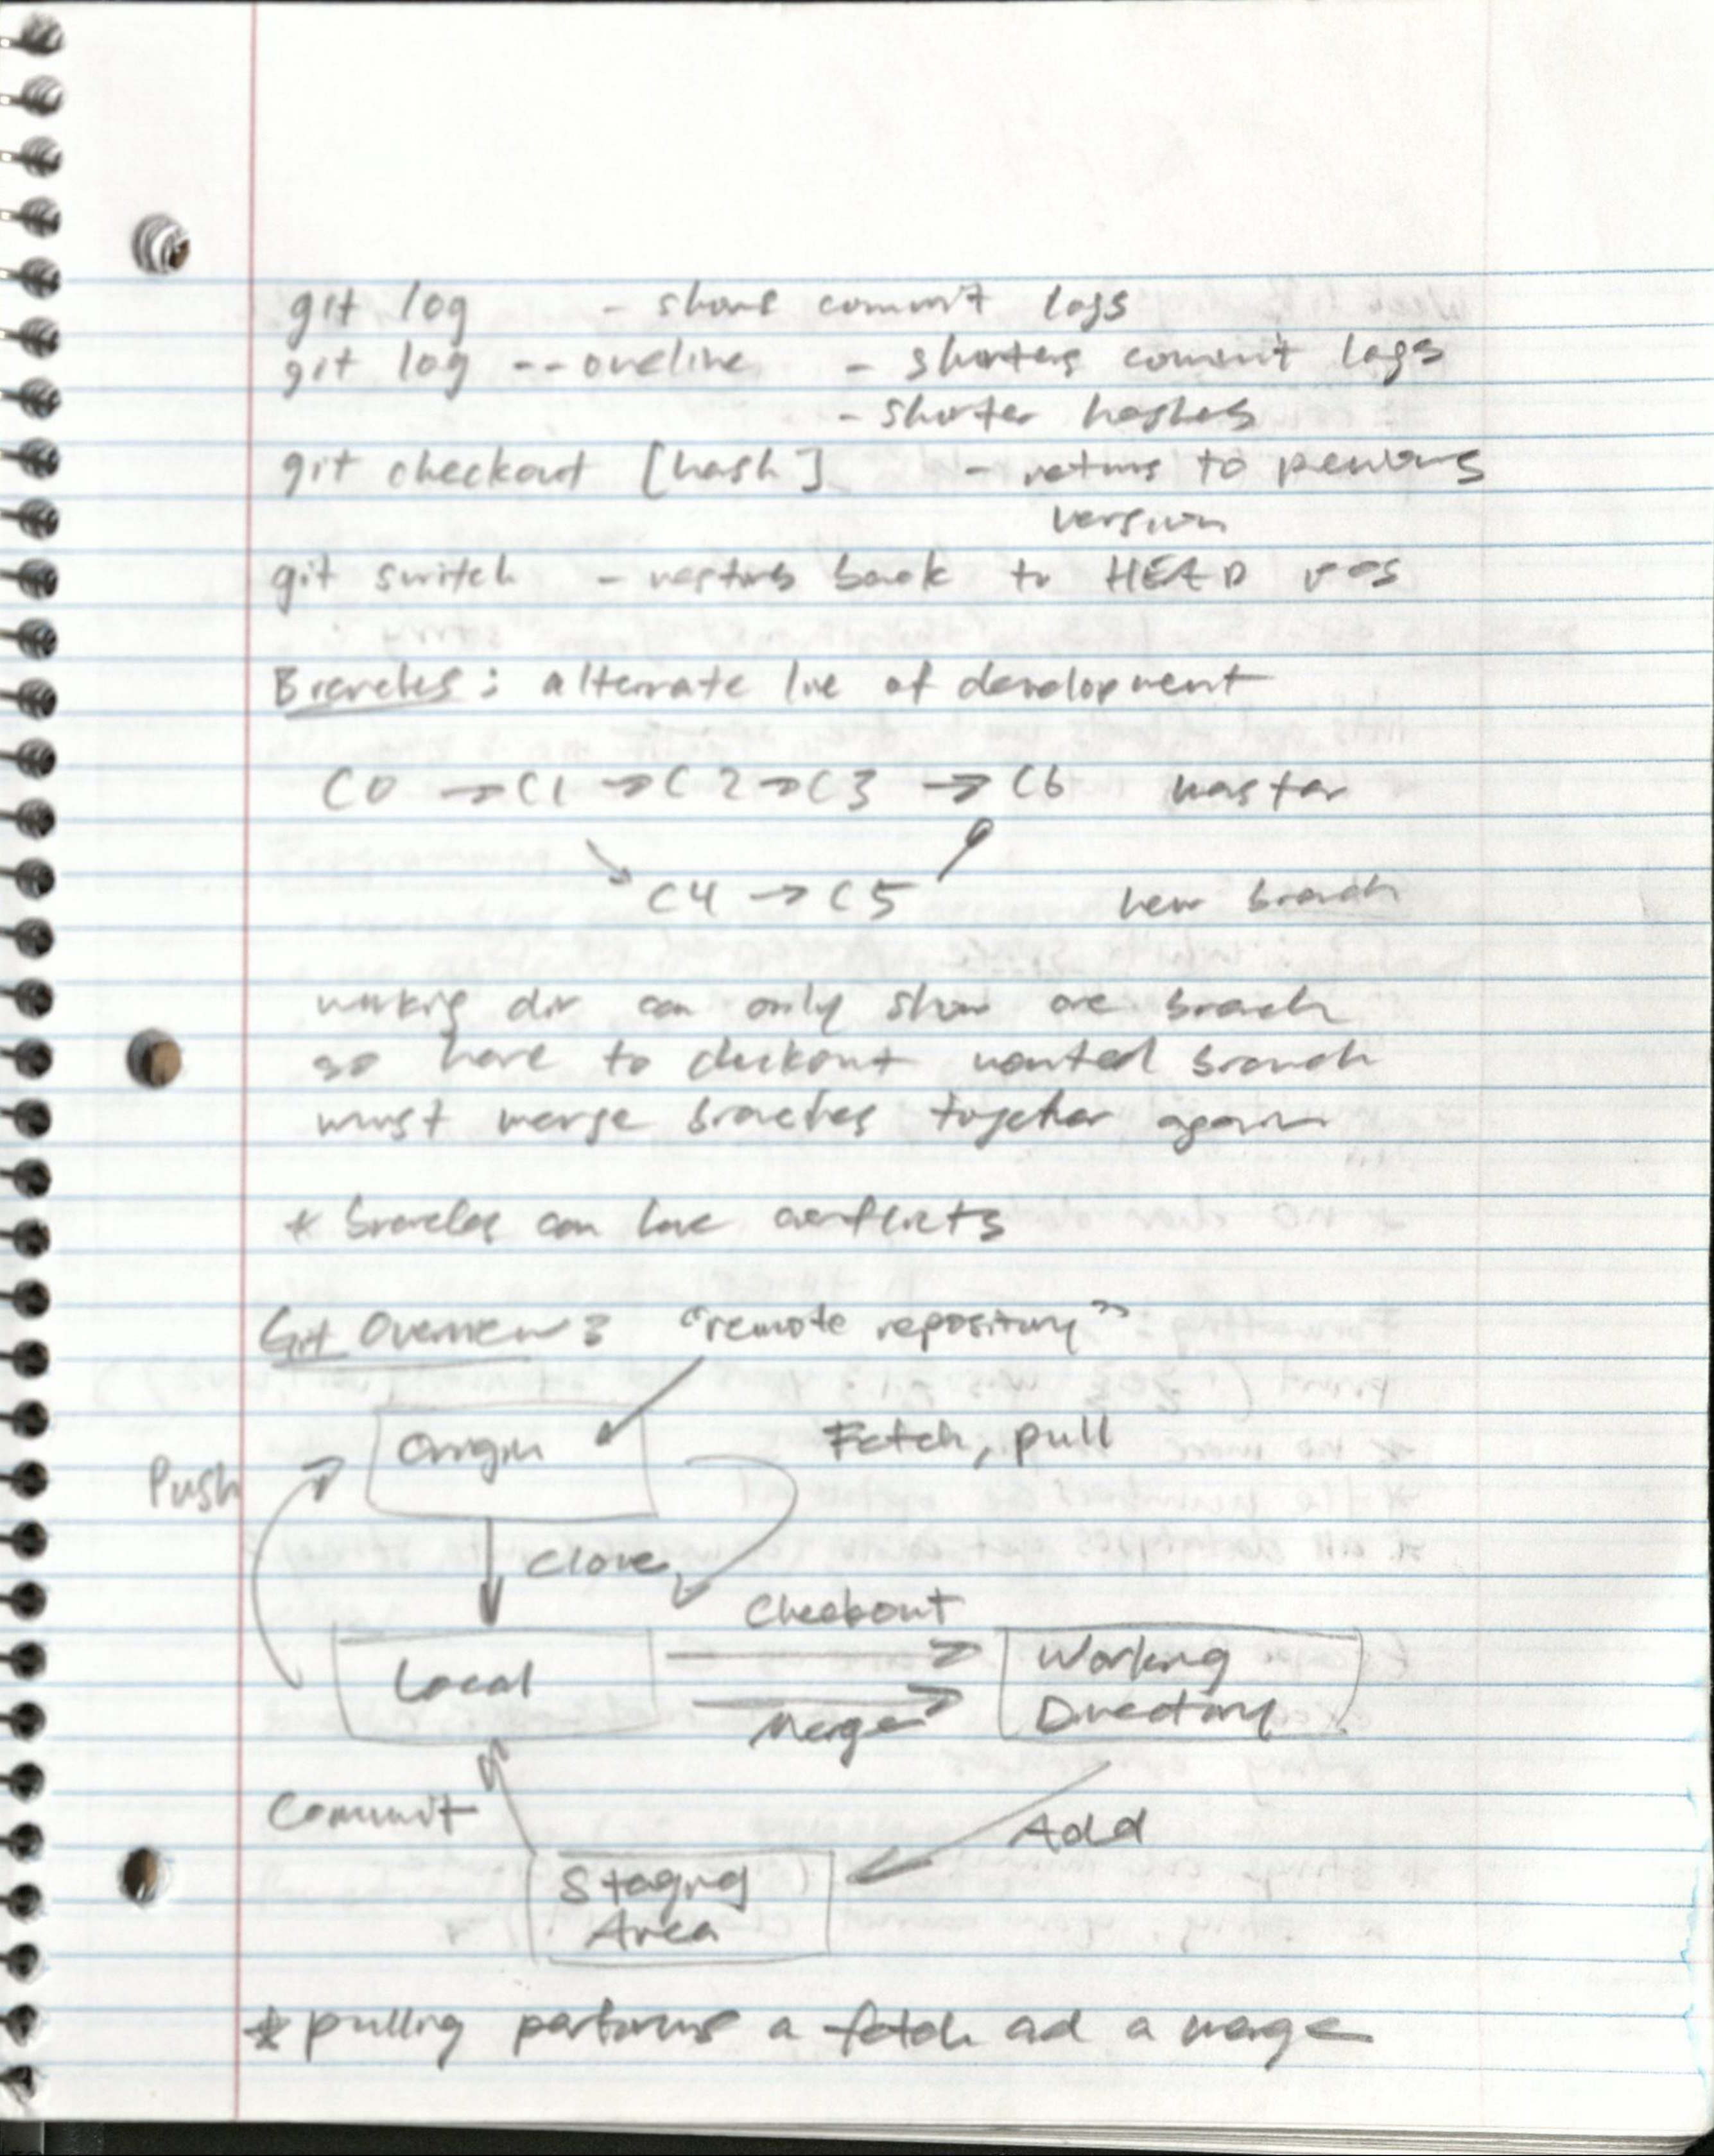 git log - shows commit logs
git log --oneline - shortens commit logs
- shorter hashes
git checkout [hash] - returns to previous
version
git switch - restores back to HEAD pos
Branches: alternate line of development
C0 → C1 → C2 → C3 → C6 master
C4 → C5 new branch
working dir can only show one branch
so have to checkout wanted branch
must merge branches together again
* branches can have conflicts
Git Overview: "remote repository"
Origin Fetch, pull
Push
Clone
Checkout
Local Working
Merge Directory
Commit Add
Staging
Area
* pulling performs a fetch and a merge